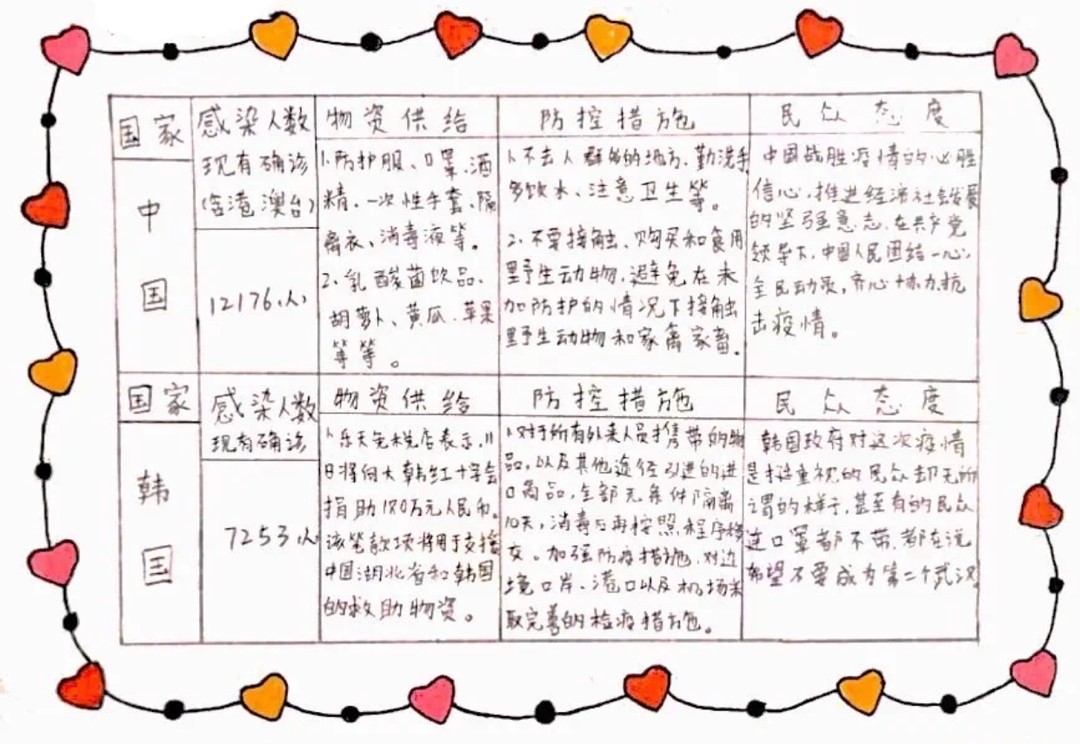 国家 感染人数 物资供给 防控措施 民众态度
中国
现有确诊
(含港澳台)
12176人
1.防护服、口罩、酒
精、一次性手套、隔
离衣、消毒液等。
2.乳酸菌饮品、
胡萝卜、黄瓜、苹果
等等。
1.不去人群多的地方、勤洗手
多饮水、注意卫生等。
2.不要接触、购买和食用
野生动物,避免在未
加防护的情况下接触
野生动物和家禽家畜。
中国战胜疫情的必胜
信心,推进经济社会发展
的坚强意志,在共产党
领导下,中国人民团结一心,
全民动员,齐心协力,抗
击疫情。
国家 感染人数 物资供给 防控措施 民众态度
韩国
现有确诊
7253人
1.乐天免税店表示,11
日将向大韩红十字会
捐助180万元人民币。
该笔款项将用于支援
中国湖北省和韩国
的救助物资。
1.对于所有外来人员携带的物
品,以及其他途径引进的进
口商品,全部无条件隔离
10天,消毒后再按照程序移
交。加强防疫措施,对边
境口岸、港口以及机场采
取完善的检疫措施。
韩国政府对这次疫情
是挺重视的民众却无所
谓的样子,甚至有的民众
连口罩都不带,都在说
希望不要成为第二个武汉